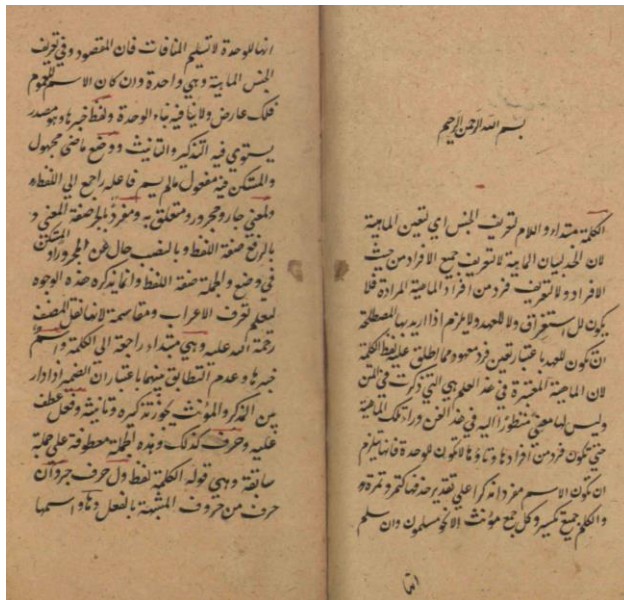 بسم الله الرحمن الرحيم
الكلمة مبتداء واللام لتعريف الجنس اي تعين الماهية
لان الحد لبيان الماهية لا لتعريف جميع الافراد من حيث
الافراد ولا لتعريف فرد من افراد الماهية المرادة فلا
يكون للاستغراق ولا للعهد ولا يلزم اذا اريد بها المصطلحة
ان تكون للعهد باعتبار تعين فرد معهود مما يطلق عليه لفظ الكلمة
لان الماهية المعتبرة في هذا العلم هي التي ذكرت في المتن
وليس لها معنى منظورا اليه في هذا الفن وراء تلك الماهية
حتى تكون فرد من افرادها وتاؤها لا تكون للوحدة فانها يلزم
ان تكون الاسم مفردا مذكرا على تقدير حذفها كتمر وتمرة
والكلم جمع تكسير وكل جمع مؤنث الا نحو مسلمون وان سلم
انها
انها للوحدة لا تسليم المنافات فان المقصود في تعريف
الجنس الماهية وهي واحدة وان كان الاسم للعموم
فلك عارض ولا ينافيه تاء الوحدة ولفظ خبرها وهو مصدر
يستوي فيه التذكير والتانيث ووضع ماضي مجهول
والمستكن فيه مفعول مالم يسم فاعله راجع الى اللفظ و
لمعنى جار ومجرور ومتعلق به ومفرد بالجر صفة المعنى و
بالرفع صفة اللفظ وبالنصب حال عن المجرور او المستكن
في وضع والجملة صفة اللفظ وانما يذكره هذه الوجوه
ليعلم تعرف الاعراب ومقاسمة لا نقل المصنف
رحمة الله عليه وهي مبتداء راجعة الى الكلمة واسم
خبرها وعدم التطابق بينهما باعتبار ان الضمير اذا دار
بين المذكر والمؤنث يجوز تذكيره وتانيثه وفعل عطف
عليه وحرف كذلك وهذه الجملة معطوفة على جملة
سابقة وهي قوله الكلمة لفظ ول حرف جر وان
حرف من حروف المشبهة بالفعل وها اسمها